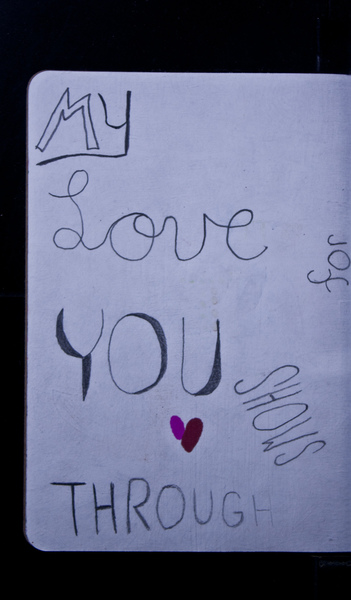 My
Love
for
YOU
SHOWS
THROUGH